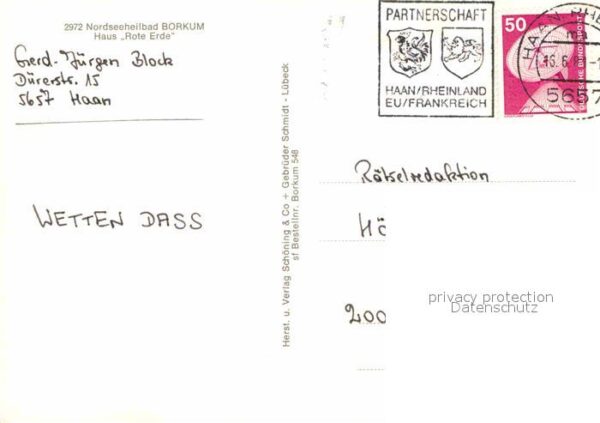 2972 Nordseeheilbad BORKUM
Haus „Rote Erde"
Gerd-Jürgen Block
Dürerstr. 15
5657 Haan
WETTEN DASS
Herst. u. Verlag Schöning & Co + Gebrüder Schmidt - Lübeck
sf Bestellnr. Borkum 548
PARTNERSCHAFT
HAAN/RHEINLAND
EU/FRANKREICH
50
DEUTSCHE BUNDESPOST
HAAN, RHE
5657
Rätselredaktion
HÖ
200
privacy protection
Datenschutz